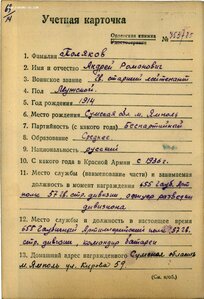 Учетная карточка
Орденская книжка
1. Фамилия Поляков
2. Имя и отчество Андрей Романович
3. Воинское звание гв. старший лейтенант
4. Пол Мужской.
5. Год рождения 1914
6. Место рождения Сумская обл. м. Ямполь
7. Партийность (с какого года) беспартийный
8. Образование Среднее
9. Национальность русский
10. С какого года в Красной Армии с 1936 г.
11. Место службы (наименование части) и занимаемая
должность в момент награждения 655 Гауб. Арт
полк 57 гв. стр. дивизии, разведки
дивизиона
12. Место службы и должность в настоящее время
655 Гаубичный Артиллерийский полк 57 гв.
стр. дивизии, командир батареи
13. Домашний адрес награжденного Сумская область
м. Ямполь ул. Кирова 59
(См. н/об.)